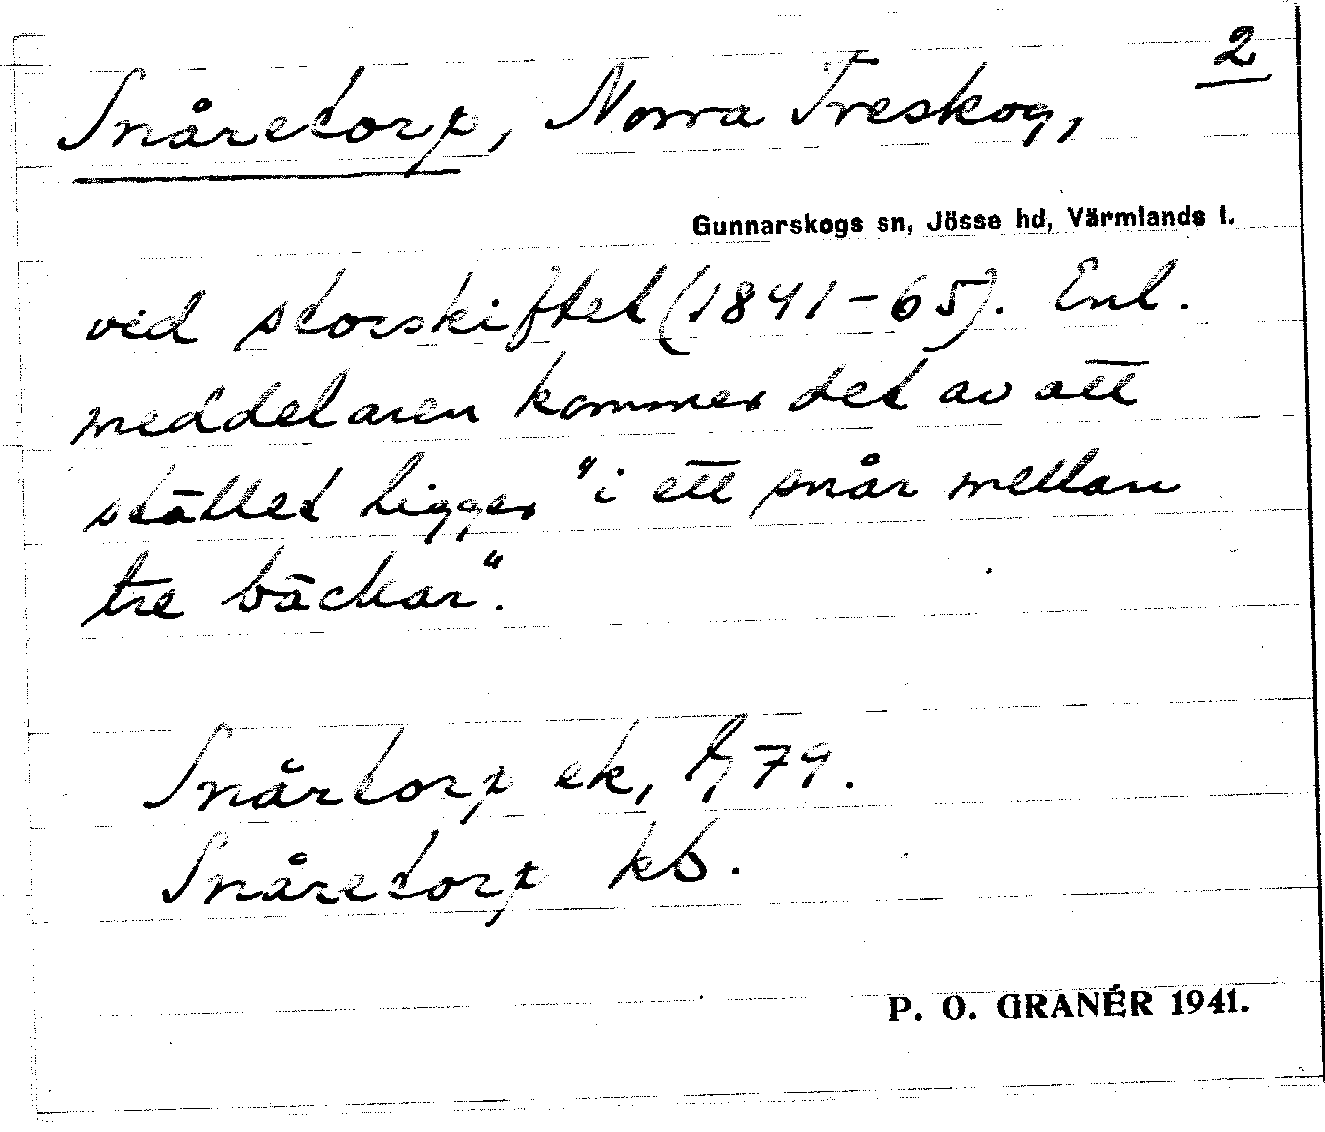 2
Snåretorp, Norra Treskog,
Gunnarskogs sn, Jösse hd, Värmlands l.
ved storskiftet (1841-65). Enl.
meddelaren kommer det av att
stället ligger "i ett snår mellan
tre bäckar".
Snårtorp ek, 79.
Snåretorp kb.
P. O. GRANÉR 1941.